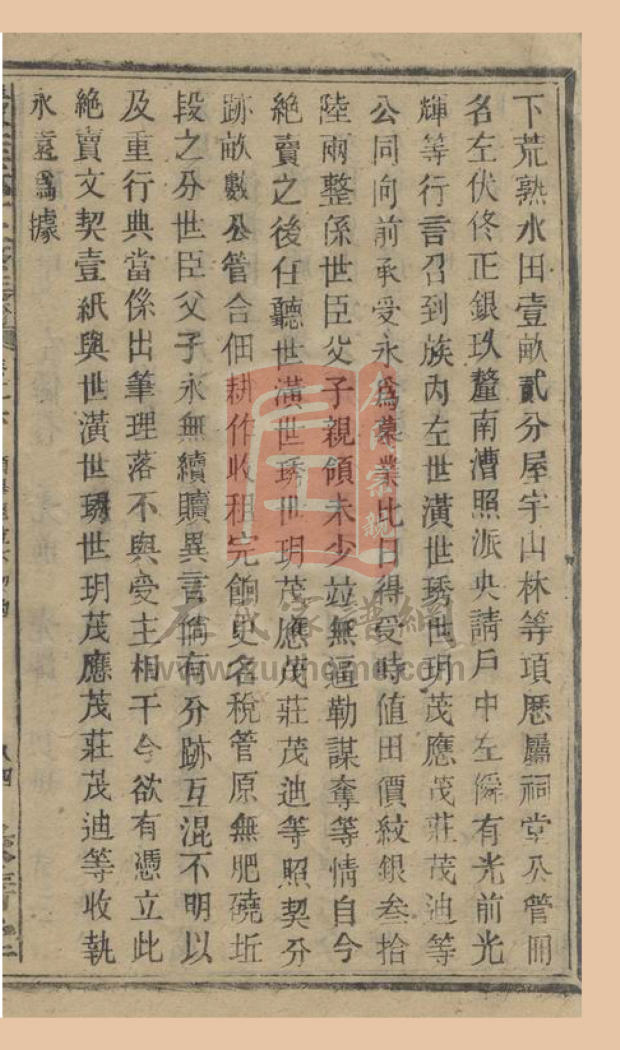 下荒熟水田壹畝貳分屋宇山林等項歴屬祠堂公管冊
名左伏佟正銀玖釐南漕照派央請戶中左僢有光前光
輝等行言召到族內左世潢世琇世玥茂應茂莊茂迪等
公同向前承受永為蒸業比日得受時值田價紋銀叁拾
陸兩整係世臣父子親領未少並無逼勒謀奪等情自今
絶賣之後任聽世潢世琇世玥茂應茂莊茂迪等照契分
跡畝數公管合佃耕作收租完餉更名稅管原無肥磽坵
段之分世臣父子永無續贖異言倘有分跡互混不明以
及重行典當係出筆理落不與受主相干今欲有憑立此
絶賣文契壹紙與世潢世琇世玥茂應茂莊茂迪等收執
永遠為據
左氏家譜網
www.zupuhome.com